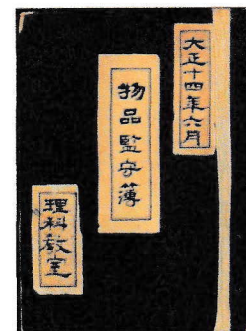 大正十四年六月
物品監守簿
理科教室